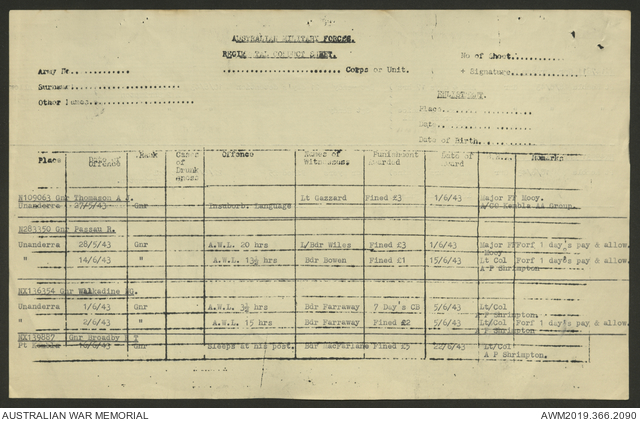 AUSTRALIAN MILITARY FORCES.
REGIMENTAL CONDUCT SHEET.
No of Sheet............
Army No............
...................... Corps or Unit.
+ Signature............
Surname
Other Names
ENLISTMENT.
Place
Date
Date of Birth
Place Date of Offence Rank Cases of Drunkenness Offence Names of Witnesses Punishment Awarded Date of Award Remarks
N109063 Gnr Thomason A J.
Unanderra 27/5/43 Gnr Insuburb. Language Lt Gazzard Fined £3 1/6/43 Major FF Mooy.
A/CO Kembla AA Group.
N283350 Gnr Passau R.
Unanderra 28/5/43 Gnr A.W.L. 20 hrs L/Bdr Wiles Fined £3 1/6/43 Major FF Forf 1 day's pay & allow.
Mooy
" 14/6/43 " A.W.L. 13½ hrs Bdr Bowen Fined £1 15/6/43 Lt Col Forf 1 day's pay & allow.
A P Shrimpton
NX136354 Gnr Walkadine
Unanderra 1/6/43 Gnr A.W.L. 3½ hrs Bdr Farraway 7 Day's CB 5/6/43 Lt/Col
A P Shrimpton.
" 2/6/43 " A.W.L. 15 hrs Bdr Farraway Fined £2 5/6/43 Lt/Col Forf 1 day's pay & allow.
A P Shrimpton
NX139887 Gnr Broadby T
Pt Kembla 16/6/43 Gnr Sleeps at his post. Bdr MacFarlane Fined £5 22/6/43 Lt/Col
A P Shrimpton.
AUSTRALIAN WAR MEMORIAL AWM2019.366.2090